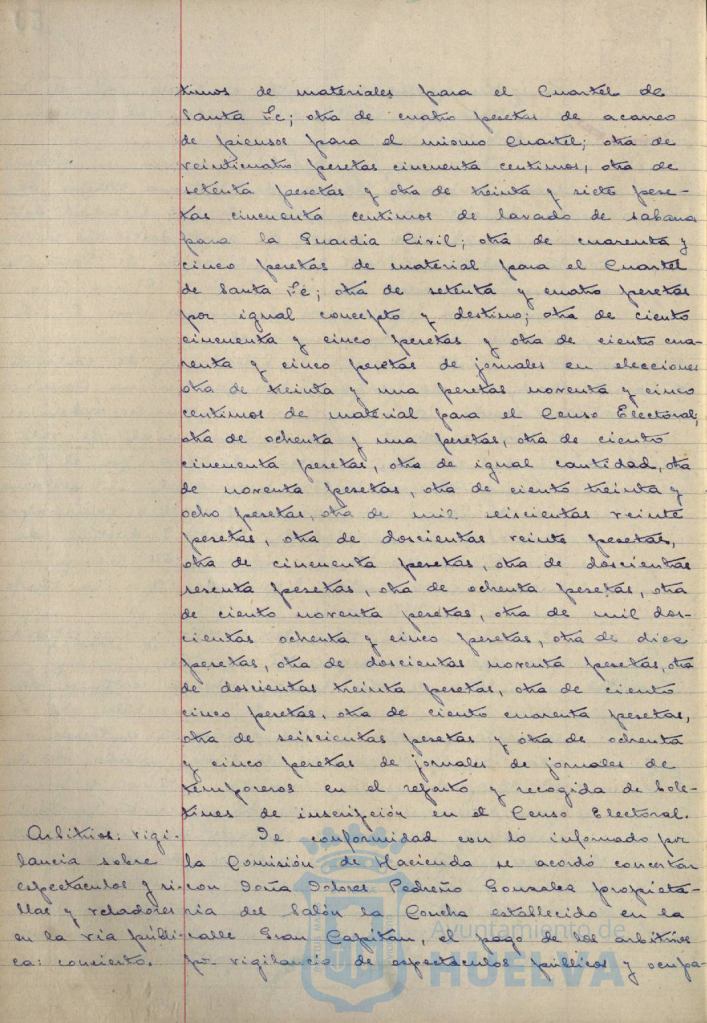 timos de materiales para el Cuartel de
Santa Fe; otra de cuatro pesetas de acarreo
de piensos para el mismo Cuartel; otra de
veinticuatro pesetas cincuenta centimos, otra de
setenta pesetas y otra de treinta y siete pese-
tas cincuenta centimos de lavado de sabanas
para la Guardia Civil; otra de cuarenta y
cinco pesetas de material para el Cuartel
de Santa Fé; otra de setenta y cuatro pesetas
por igual concepto y destino; otra de ciento
cincuenta y cinco pesetas y otra de ciento cua-
renta y cinco pesetas de jornales en elecciones
otra de treinta y una pesetas noventa y cinco
centimos de material para el Censo Electoral;
otra de ochenta y una pesetas, otra de ciento
cincuenta pesetas, otra de igual cantidad, otra
de noventa pesetas, otra de ciento treinta y
ocho pesetas, otra de mil seiscientas veinte
pesetas, otra de doscientas veinte pesetas,
otra de cincuenta pesetas, otra de doscientas
sesenta pesetas, otra de ochenta pesetas, otra
de ciento noventa pesetas, otra de mil dos-
cientas ochenta y cinco pesetas, otra de diez
pesetas, otra de doscientas noventa pesetas, otra
de doscientas treinta pesetas, otra de ciento
cinco pesetas, otra de ciento cuarenta pesetas,
otra de seiscientas pesetas y otra de ochenta
y cinco pesetas de jornales de jornales de
temporeros en el reparto y recogida de bole-
tines de inscripción en el Censo Electoral.
Arbitrios: vigi-
lancia sobre
espectaculos y si-
llas y veladores
en la via públi-
ca: concierto.
De conformidad con lo informado por
la Comisión de Hacienda se acordó concertar
con Doña Dolores Pedreño Gonzalez propieta-
ria del Salón la Concha establecido en la
calle Gran Capitan, el pago de los arbitrios
por vigilancia de espectaculos públicos y ocupa-
Ayuntamiento de
HUELVA